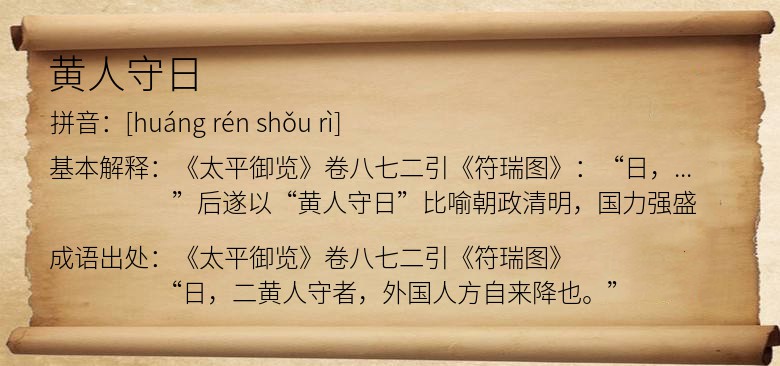 黄人守日
拼音：[huáng rén shǒu rì]
基本解释：《太平御览》卷八七二引《符瑞图》：“日，...
”后遂以“黄人守日”比喻朝政清明，国力强盛
成语出处：《太平御览》卷八七二引《符瑞图》
“日，二黄人守者，外国人方自来降也。”